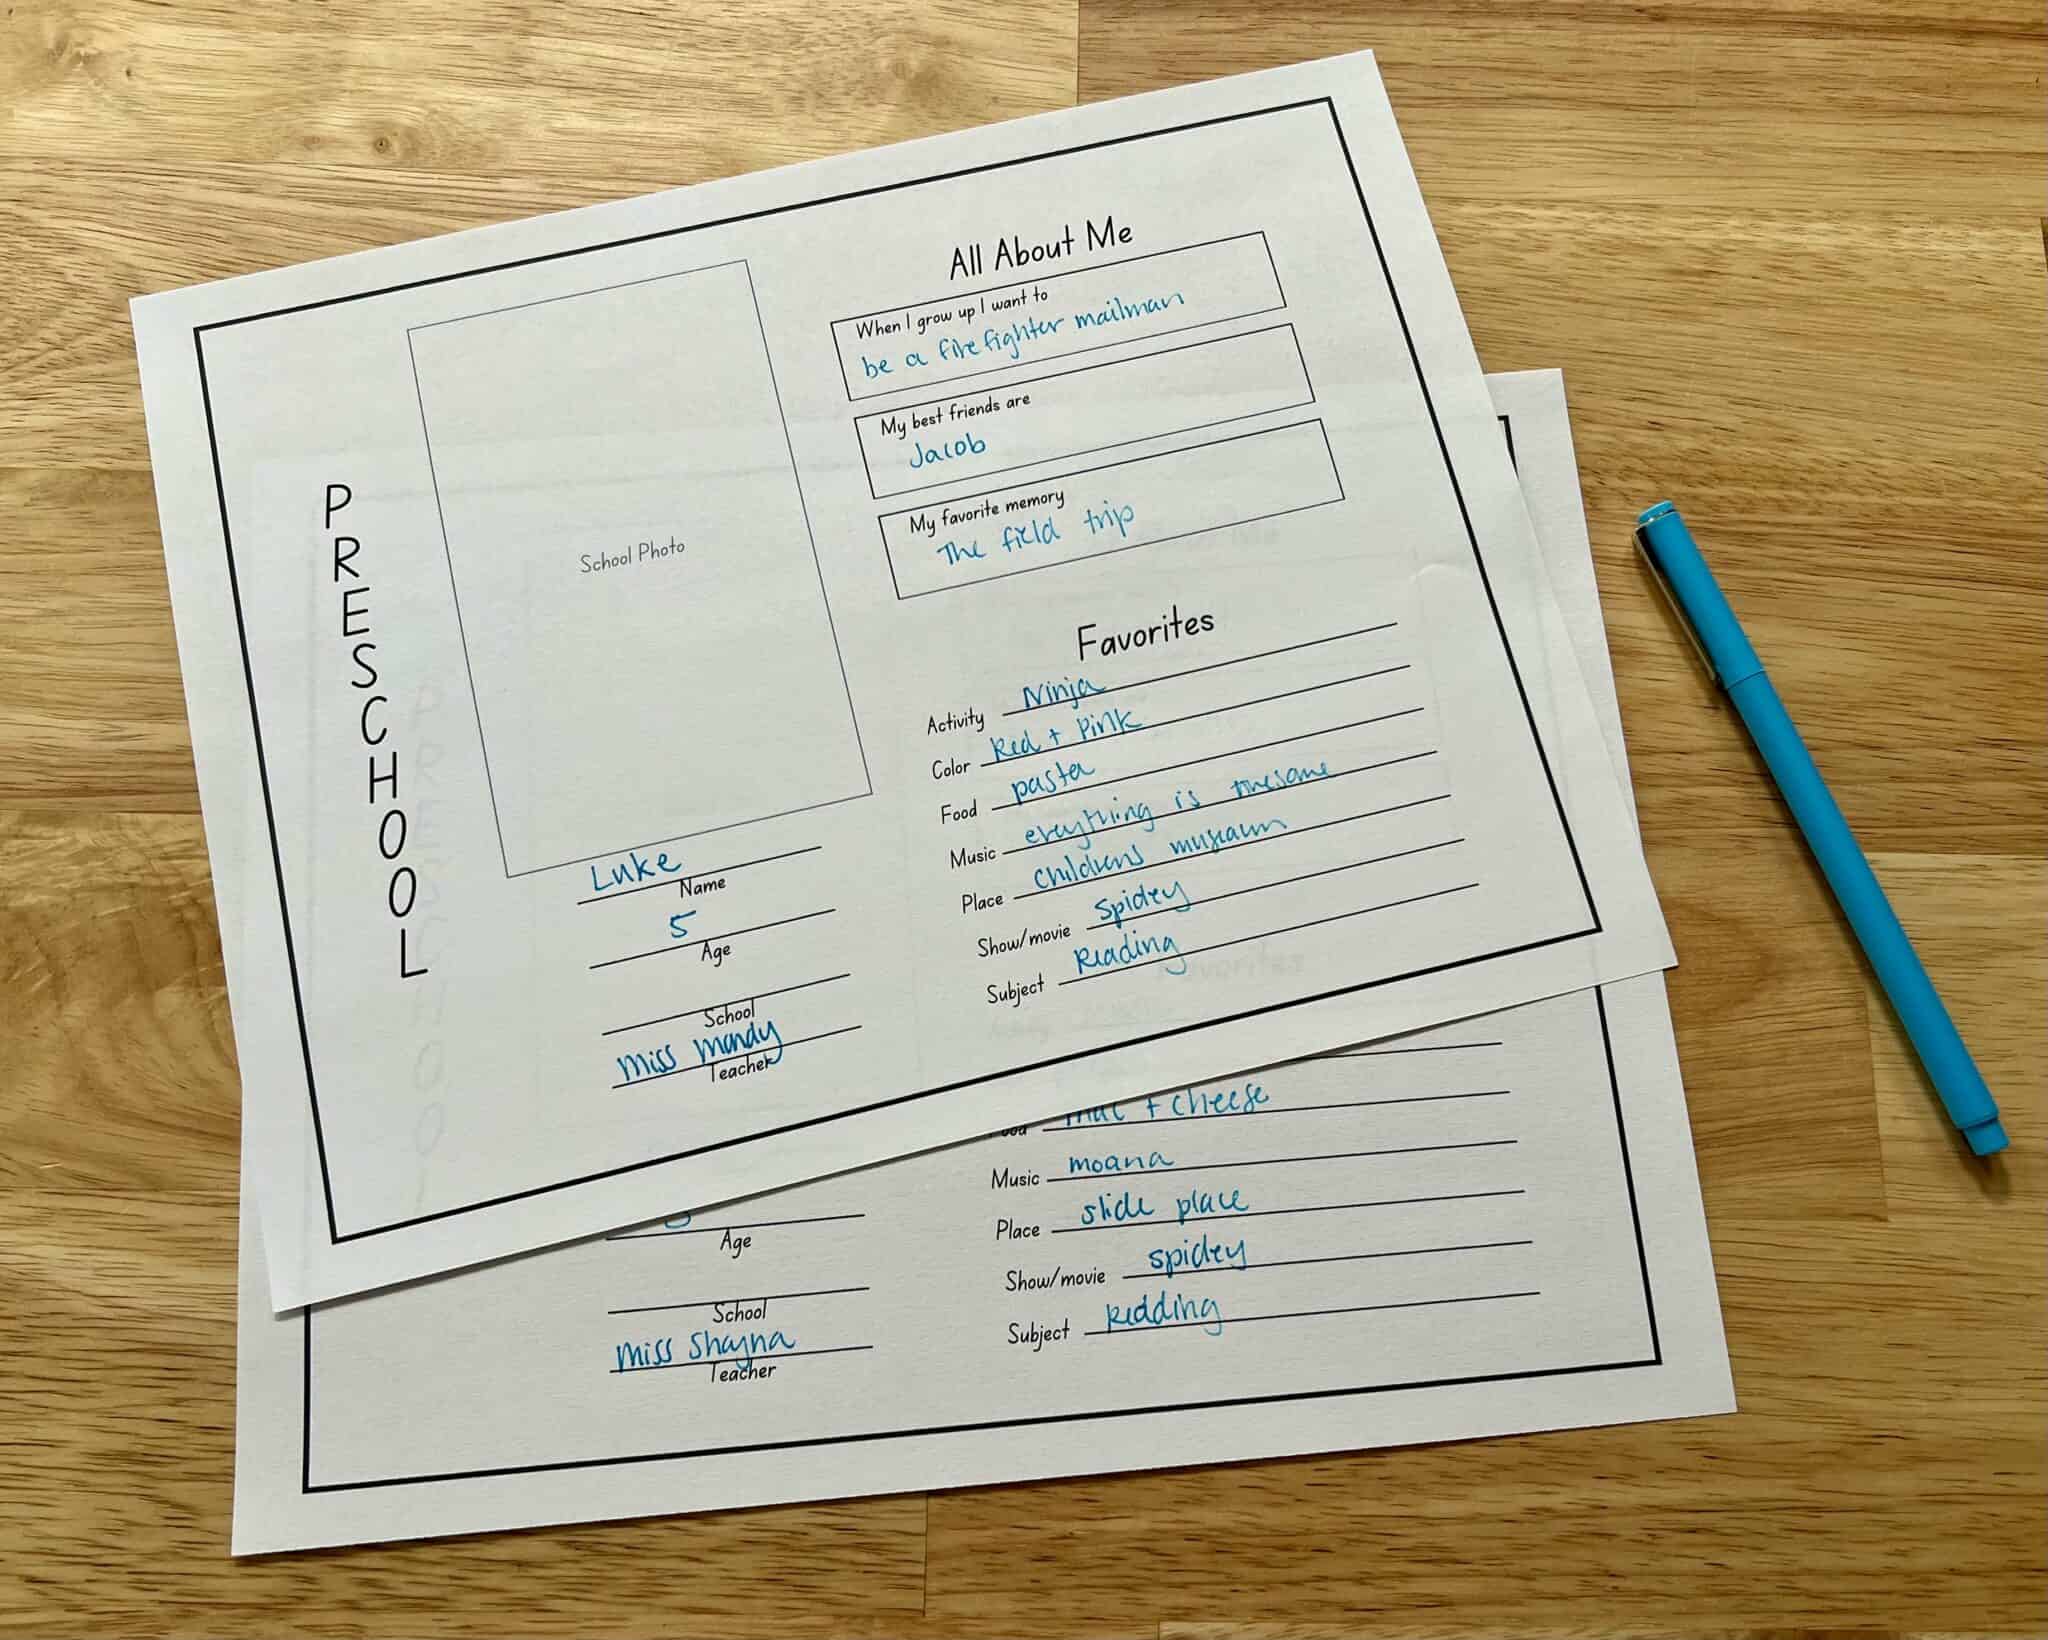 PRESCHOOL
School Photo
Luke
Name
5
Age
School
Miss Mandy
Teacher
All About Me
When I grow up I want to
be a firefighter mailman
My best friends are
Jacob
My favorite memory
The field trip
Favorites
Activity Ninja
Color Red + Pink
Food pasta
Music everything is awesome
Place childrens museum
Show/movie spidey
Subject Reading
Age
School
Miss Shayna
Teacher
Food mac + cheese
Music moana
Place slide place
Show/movie spidey
Subject Reading